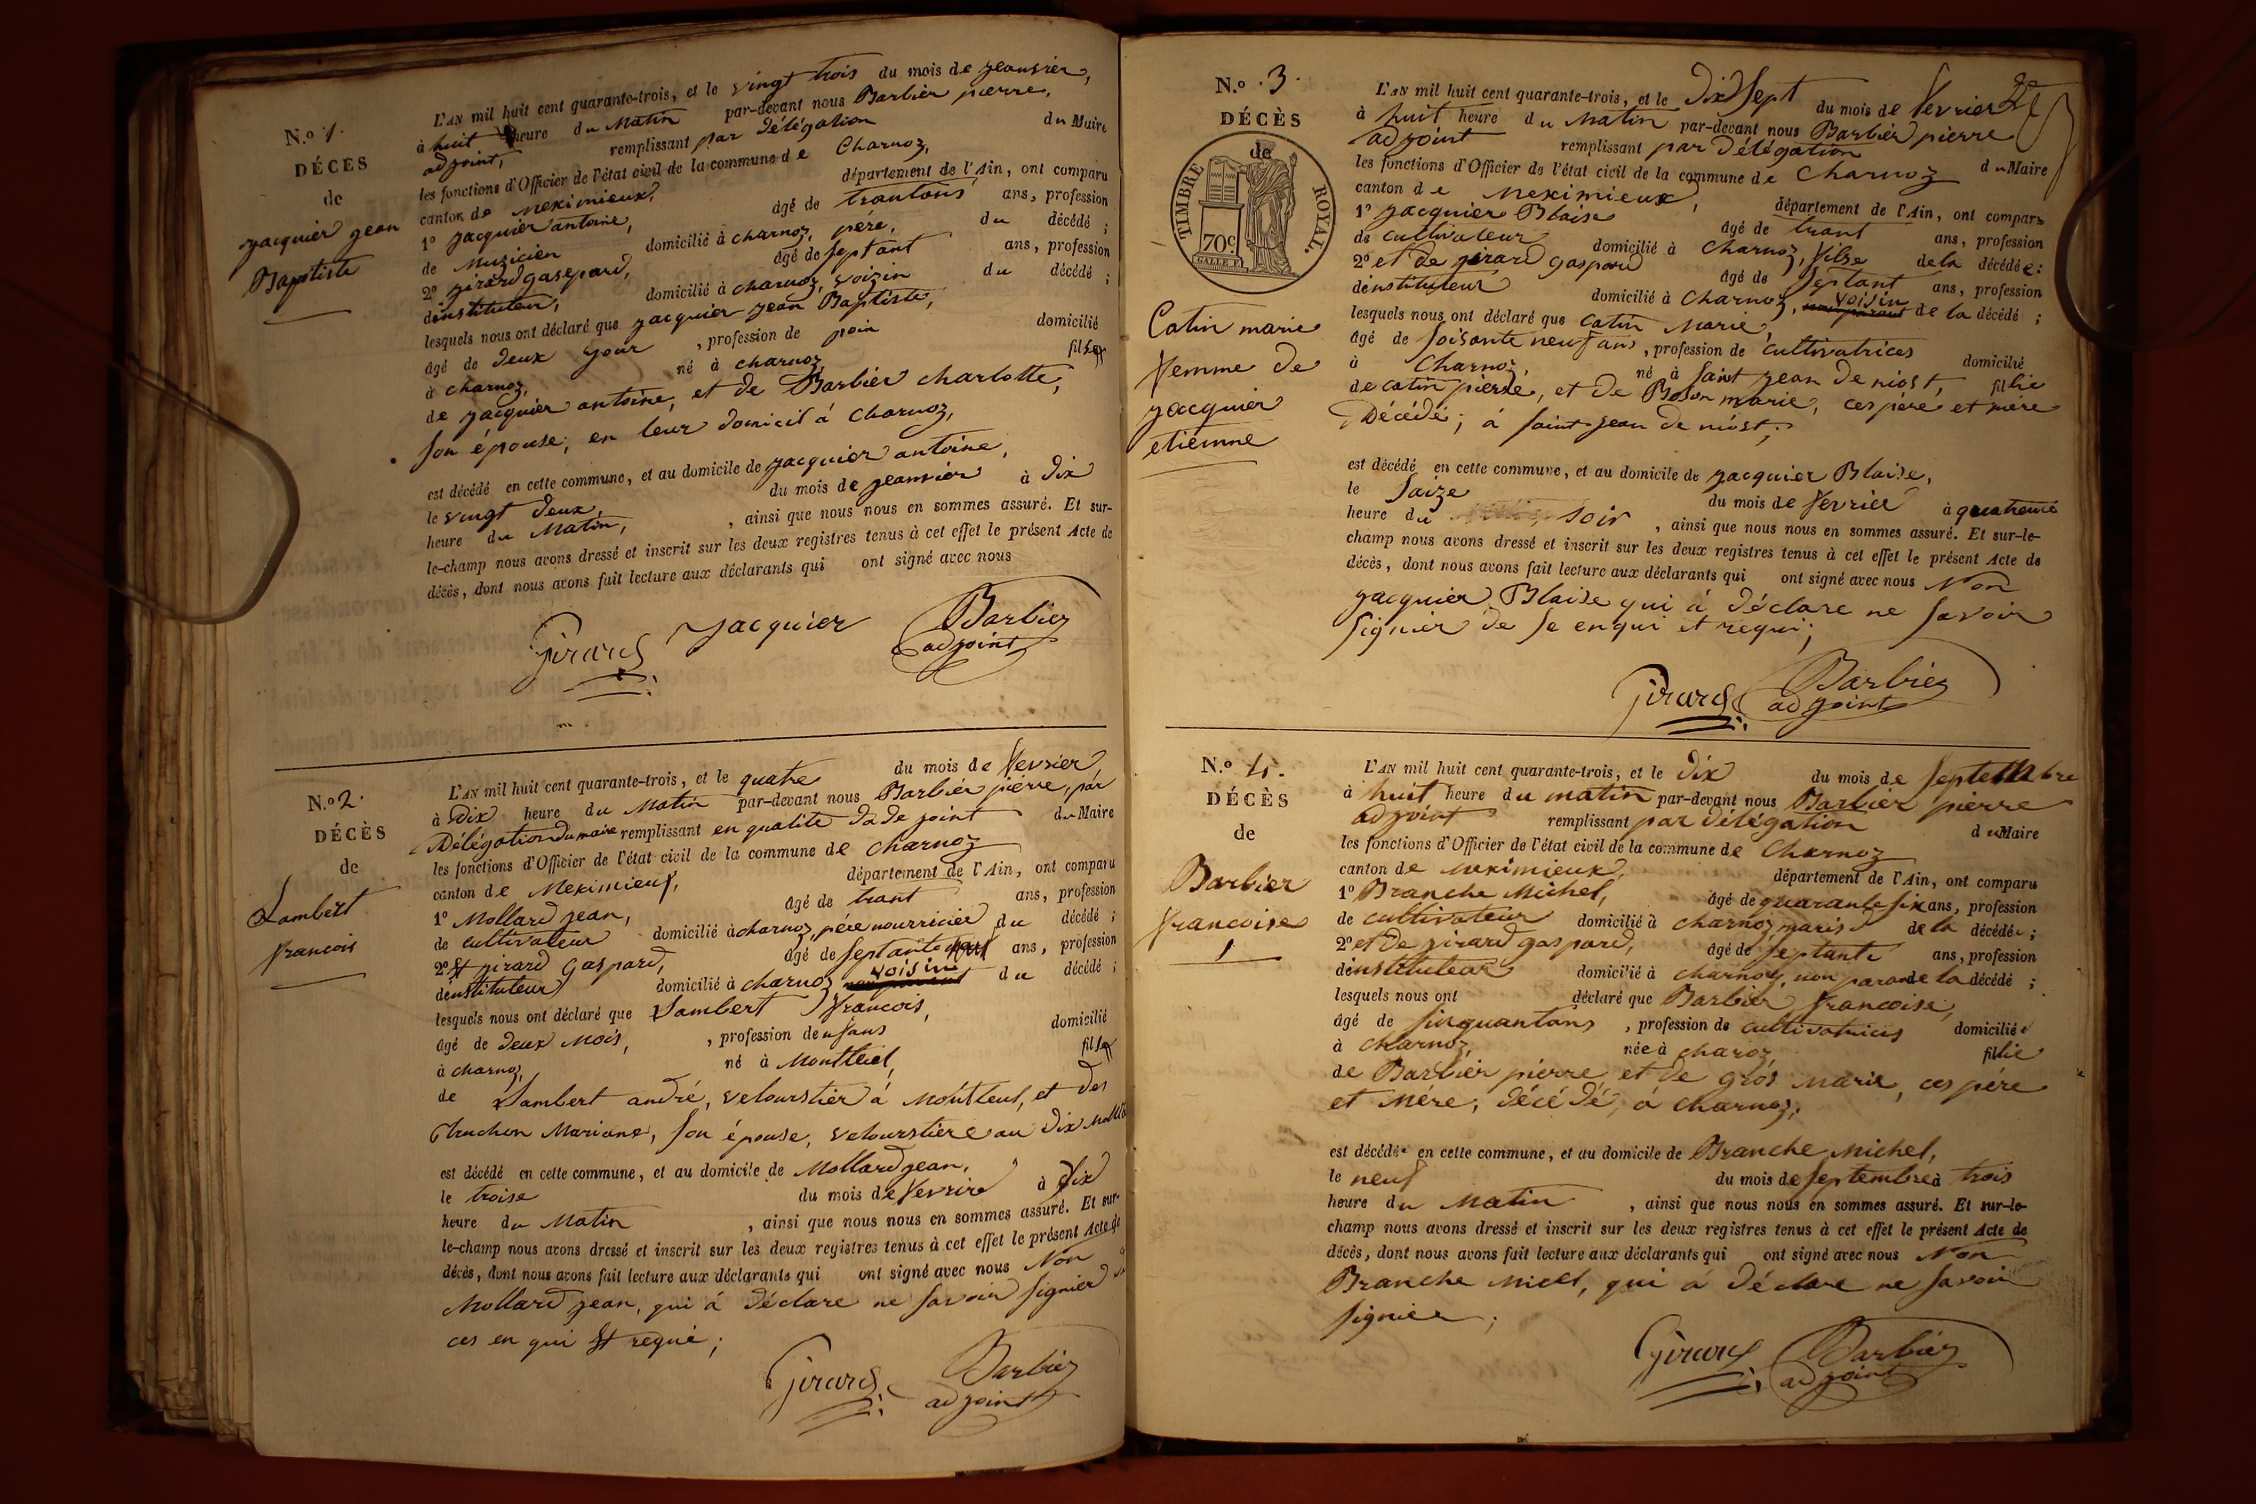 N.o 1.
DÉCÈS
de
jacquier jean
Baptiste
L'AN mil huit cent quarante-trois, et le vingt trois du mois de jeanvier,
à huit heure du Matin par-devant nous Barbier pierre,
adjoint, remplissant par délégation du Maire
les fonctions d'Officier de l'état civil de la commune de Charnoz,
canton de Meximieux, département de l'Ain, ont comparu
1o jacquier antoine, âgé de trantons ans, profession
de Muzicien domicilié à charnoz, pére, du décédé ;
2o girard gaspard, âgé de septant ans, profession
dinstituteur, domicilié à charnoz, voizin du décédé ;
lesquels nous ont déclaré que jacquier jean Baptiste,
âgé de deux jour , profession de poin domicilié
à charnoz, né à charnoz, fils
de jacquier antoine, et de Barbier charlotte,
son épouse, en leur domicil á charnoz,
est décédé en cette commune, et au domicile de jacquier antoine,
le vingt deux, du mois de jeanvier à dix
heure du Matin, , ainsi que nous nous en sommes assuré. Et sur-
le-champ nous avons dressé et inscrit sur les deux registres tenus à cet effet le présent Acte de
décès, dont nous avons fait lecture aux déclarants qui ont signé avec nous
Girard jacquier Barbier
adjoint
N.o 2.
DÉCÈS
de
Lambert
francois
L'AN mil huit cent quarante-trois, et le quatre du mois de Fevrier
à dix heure du Matin par-devant nous Barbier pierre, par
Délégation du maire remplissant en qualite dade joint du Maire
les fonctions d'Officier de l'état civil de la commune de charnoz
canton de Meximieux, département de l'Ain, ont comparu
1o Mollard jean, âgé de trant ans, profession
de cultivateur domicilié à charnoz, pére nourricier du décédé ;
2o et girard Gaspard, âgé de septante ans, profession
dinstituteur domicilié à charnoz voisin du décédé ;
lesquels nous ont déclaré que Lambert francois,
âgé de deux Mois, , profession denfans domicilié
à charnoz, né à Montluel, fils
de Lambert andré, velourstier á Montluel, et des
Truchon Mariane, son épouse, velourstiere au dix
est décédé en cette commune, et au domicile de Mollard jean,
le troise du mois de fevrire à dix
heure du Matin , ainsi que nous nous en sommes assuré. Et sur-
le-champ nous avons dressé et inscrit sur les deux registres tenus à cet effet le présent Acte de
décès, dont nous avons fait lecture aux déclarants qui ont signé avec nous Non
Mollard jean, qui á déclare ne savoir signier
ces en qui et requi ;
Girard Barbier
adjoint
N.o 3.
DÉCÈS
de
TIMBRE ROYAL.
70c
Catin marie
femme de
jacquier
etiemne
L'AN mil huit cent quarante-trois, et le Dix Sept du mois de Fevrier
à huit heure du Matin par-devant nous Barbier pierre
adjoint remplissant par délégation du Maire
les fonctions d'Officier de l'état civil de la commune de Charnoz
canton de Meximieux, département de l'Ain, ont comparu
1o jacquier Blaise âgé de trant ans, profession
de cultivateur domicilié à Charnoz, filse de la décédée ;
2o et de girard gaspard âgé de septant ans, profession
dinstituteur domicilié à Charnoz, voisin de la décédé ;
lesquels nous ont déclaré que Catin Marie,
âgé de soisante neuf ans, profession de cultivatrices domicilié
à Charnoz, né à saint jean de niost, fillie
de catin pierre, et de Boson marie, ces pére et mére
Décédé, á saint jean de niost ;
est décédé en cette commune, et au domicile de jacquier Blaise,
le saize du mois de fevrier à quatreme
heure du soir , ainsi que nous nous en sommes assuré. Et sur-le-
champ nous avons dressé et inscrit sur les deux registres tenus à cet effet le présent Acte de
décès, dont nous avons fait lecture aux déclarants qui ont signé avec nous Non
jacquier Blaise qui á déclare ne savoir
signier de se enqui et requi ;
Girard Barbier
adjoint
N.o 4.
DÉCÈS
de
Barbier
francoise
L'AN mil huit cent quarante-trois, et le dix du mois de septembre
à huit heure du matin par-devant nous Barbier pierre
adjoint remplissant par délégation du Maire
les fonctions d'Officier de l'état civil de la commune de Charnoz
canton de meximieux, département de l'Ain, ont comparu
1o Branche Michel, âgé de quarante six ans, profession
de cultivateur domicilié à charnoz, maris de la décédée ;
2o et de girard gaspard, âgé de septante ans, profession
dinstituteur domicilié à charnoz, non parand de la décédé ;
lesquels nous ont déclaré que Barbier francoise,
âgé de sinquantans , profession de cultivatrices domiciliée
à charnoz, née à charoz, fillie
de Barbier pierre et de gros Marie, ces pére
et Mére, décédé, á charnoz,
est décédée en cette commune, et au domicile de Branche Michel,
le neuf du mois de septembre à trois
heure du Matin , ainsi que nous nous en sommes assuré. Et sur-le-
champ nous avons dressé et inscrit sur les deux registres tenus à cet effet le présent Acte de
décès, dont nous avons fait lecture aux déclarants qui ont signé avec nous Non
Branche Micel, qui a déclare ne savoir
signier ;
Girard Barbier
adjoint